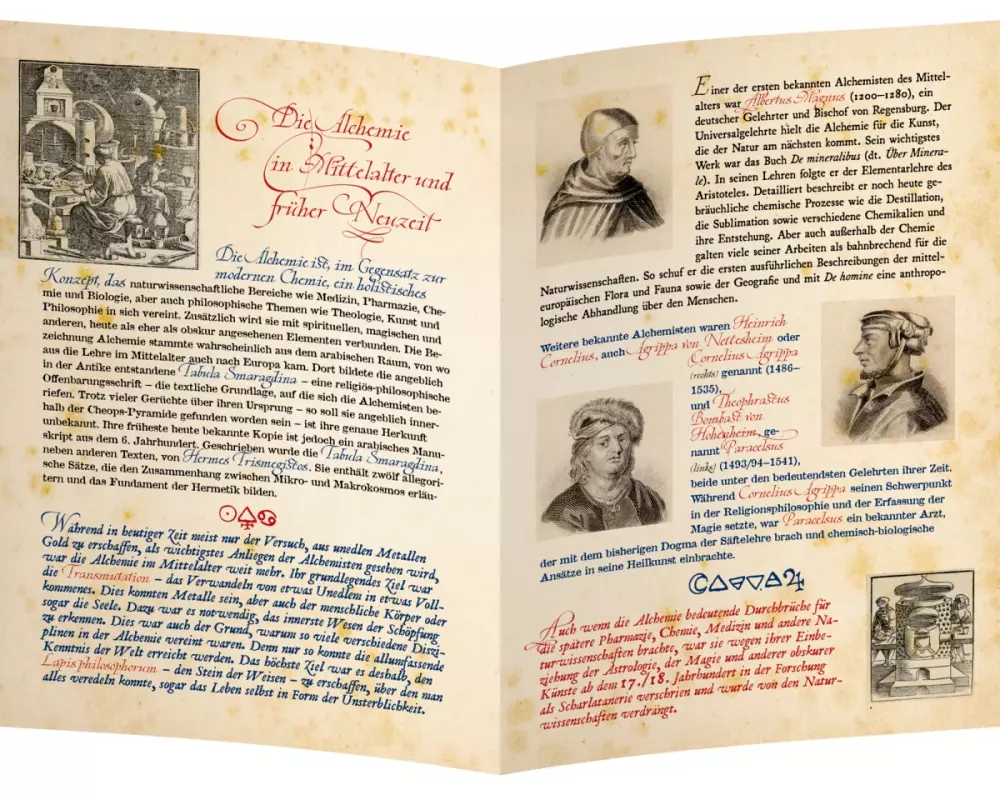 Die Alchemie
in Mittelalter und
früher Neuzeit
Die Alchemie ist, im Gegensatz zur
modernen Chemie, ein holistisches
Konzept, das naturwissenschaftliche Bereiche wie Medizin, Pharmazie, Che-
mie und Biologie, aber auch philosophische Themen wie Theologie, Kunst und
Philosophie in sich vereint. Zusätzlich wird sie mit spirituellen, magischen und
anderen, heute als eher als obskur angesehenen Elementen verbunden. Die Be-
zeichnung Alchemie stammte wahrscheinlich aus dem arabischen Raum, von wo
aus die Lehre im Mittelalter auch nach Europa kam. Dort bildete die angeblich
in der Antike entstandene Tabula Smaragdina – eine religiös-philosophische
Offenbarungsschrift – die textliche Grundlage, auf die sich die Alchemisten be-
riefen. Trotz vieler Gerüchte über ihren Ursprung – so soll sie angeblich inner-
halb der Cheops-Pyramide gefunden worden sein – ist ihre genaue Herkunft
unbekannt. Ihre früheste heute bekannte Kopie ist jedoch ein arabisches Manu-
skript aus dem 6. Jahrhundert. Geschrieben wurde die Tabula Smaragdina,
neben anderen Texten, von Hermes Trismegistos. Sie enthält zwölf allegori-
sche Sätze, die den Zusammenhang zwischen Mikro- und Makrokosmos erläu-
tern und das Fundament der Hermetik bilden.
Während in heutiger Zeit meist nur der Versuch, aus unedlen Metallen
Gold zu erschaffen, als wichtigstes Anliegen der Alchemisten gesehen wird,
war die Alchemie im Mittelalter weit mehr. Ihr grundlegendes Ziel war
die Transmutation – das Verwandeln von etwas Unedlem in etwas Voll-
kommenes. Dies konnten Metalle sein, aber auch der menschliche Körper oder
sogar die Seele. Dazu war es notwendig, das innerste Wesen der Schöpfung
zu erkennen. Dies war auch der Grund, warum so viele verschiedene Diszi-
plinen in der Alchemie vereint waren. Denn nur so konnte die allumfassende
Kenntnis der Welt erreicht werden. Das höchste Ziel war es deshalb, den
Lapis philosophorum – den Stein der Weisen – zu erschaffen, über den man
alles veredeln konnte, sogar das Leben selbst in Form der Unsterblichkeit.
Einer der ersten bekannten Alchemisten des Mittel-
alters war Albertus Magnus (1200–1280), ein
deutscher Gelehrter und Bischof von Regensburg. Der
Universalgelehrte hielt die Alchemie für die Kunst,
die der Natur am nächsten kommt. Sein wichtigstes
Werk war das Buch De mineralibus (dt. Über Minera-
le). In seinen Lehren folgte er der Elementarlehre des
Aristoteles. Detailliert beschreibt er noch heute ge-
bräuchliche chemische Prozesse wie die Destillation,
die Sublimation sowie verschiedene Chemikalien und
ihre Entstehung. Aber auch außerhalb der Chemie
galten viele seiner Arbeiten als bahnbrechend für die
Naturwissenschaften. So schuf er die ersten ausführlichen Beschreibungen der mittel-
europäischen Flora und Fauna sowie der Geografie und mit De homine eine anthropo-
logische Abhandlung über den Menschen.
Weitere bekannte Alchemisten waren Heinrich
Cornelius, auch Agrippa von Nettesheim oder
Cornelius Agrippa
(rechts) genannt (1486–
1535),
und Theophrastus
Bombast von
Hohenheim, ge-
nannt Paracelsus
(links) (1493/94–1541),
beide unter den bedeutendsten Gelehrten ihrer Zeit.
Während Cornelius Agrippa seinen Schwerpunkt
in der Religionsphilosophie und der Erfassung der
Magie setzte, war Paracelsus ein bekannter Arzt,
der mit dem bisherigen Dogma der Säftelehre brach und chemisch-biologische
Ansätze in seine Heilkunst einbrachte.
Auch wenn die Alchemie bedeutende Durchbrüche für
die spätere Pharmazie, Chemie, Medizin und andere Na-
turwissenschaften brachte, war sie wegen ihrer Einbe-
ziehung der Astrologie, der Magie und anderer obskurer
Künste ab dem 17./18. Jahrhundert in der Forschung
als Scharlatanerie verschrien und wurde von den Natur-
wissenschaften verdrängt.